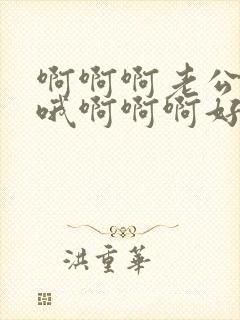 啊啊啊老公
哦啊啊啊好
洪重華